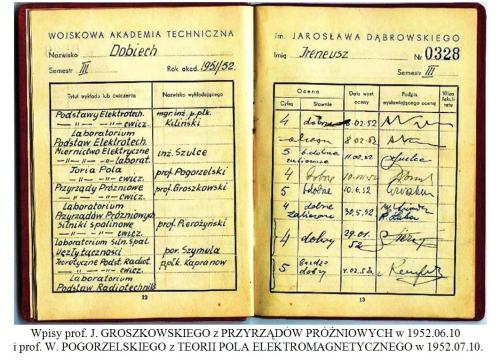 WOJSKOWA AKADEMIA TECHNICZNA
Nazwisko Dobiech
Semestr III Rok akad. 1951/52.
Tytuł wykładu lub ćwiczenia Nazwisko wykładającego
Podstawy Elektrotech. mgr. inż. p.płk.
—"— —"— ćwicz. Kiliński
Laboratorium
Podstaw Elektrotech.
Miernictwo Elektryczne inż. Szulce
—"— —"— laborat.
Teoria Pola prof. Pogorzelski
—"— —"— ćwicz.
Przyrządy Próżniowe prof. Groszkowski
—"— —"— ćwicz.
Laboratorium
Przyrządów Próżniowych
Silniki spalinowe prof. Pierożyński
—"— —"— ćwicz.
Laboratorium Siln. Spal.
Węzły łączności por. Szymula
Teoretyczne Podst. Radiot. ppłk. Kapranow
—"— —"— ćwicz.
Laboratorium
Podstaw Radiotechnik
12
im. JAROSŁAWA DĄBROWSKIEGO
Imię Ireneusz Nr 0328
Semestr III
Ocena
Cyfrą Słownie Data wyst. oceny Podpis wystawiającego ocenę Wiza fakultetu
4 dobrze 8.02.52
8.02.52
5 11.02.52
4 dobry
5 b.dobre 10.6.52
4 dobre
zaliczono 30.5.52
4 dobry 29.01.52
5 bardzo
dobry
13
Wpisy prof. J. GROSZKOWSKIEGO z PRZYRZĄDÓW PRÓŻNIOWYCH w 1952.06.10
i prof. W. POGORZELSKIEGO z TEORII POLA ELEKTROMAGNETYCZNEGO w 1952.07.10.